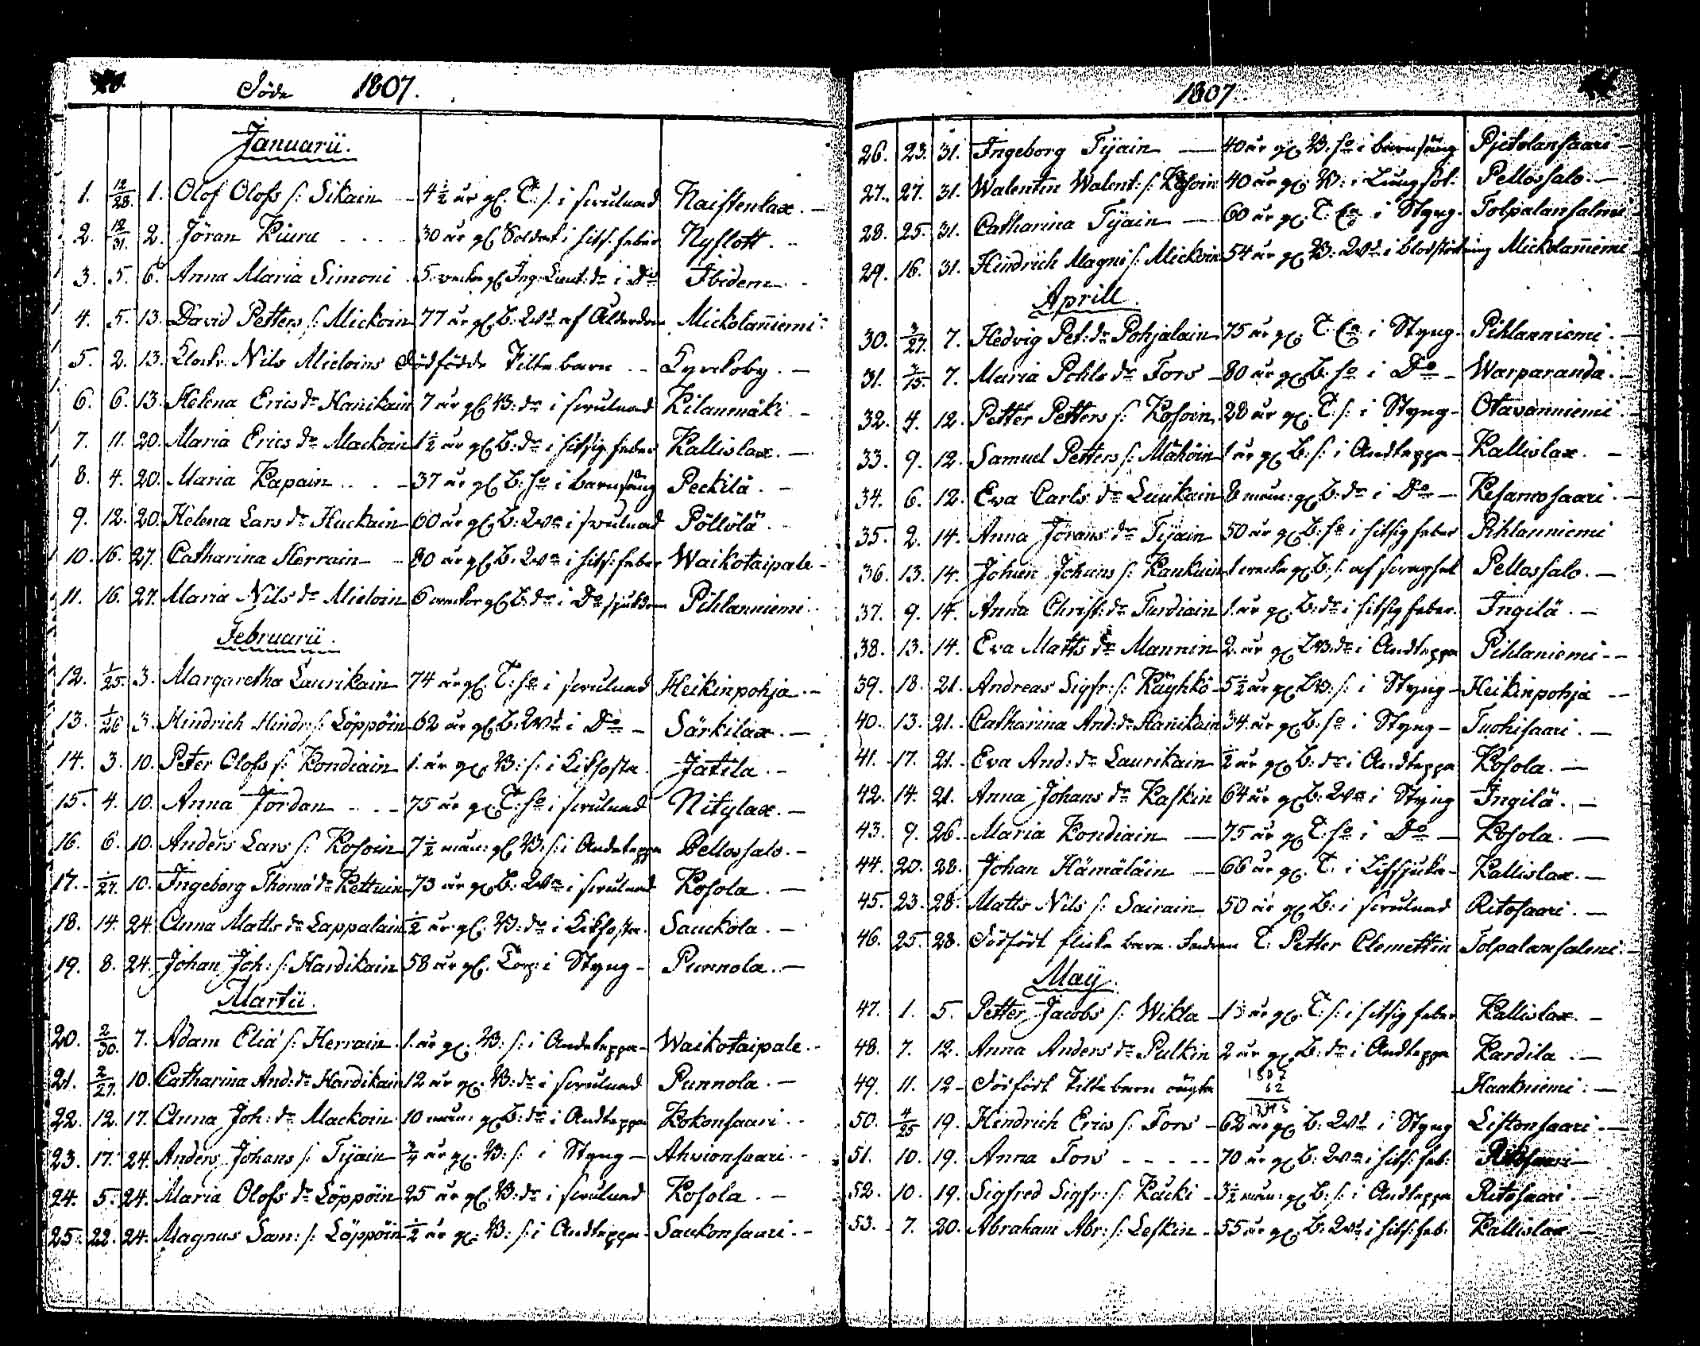 Döde 1807.
Januarii.
1. 12/28. 1. Olof Olofs s: Sikain 4½ år gl. T: s: i Naistenlax.
2. 12/31. 2. Jöran Kiuru 30 år gl Soldat i hits: feber Nyslott.
3. 5. 6. Anna Maria Simoni 5. veckr gl Ing: Lieut: dr i Do Ibidem
4. 5. 13. David Petters s: Mickoin 77 år gl B: af Ålderdom Mickolaniemi
5. 2. 13. Klock. Nils Micloins Dödfödde barn Kyrkoby.
6. 6. 13. Helena Erics dr Hanikain 7 år gl B: dr i Kilanmäki
7. 11. 20. Maria Erics dr Mackoin 1½ år gl B: dr i hitsig feber Kallislax.
8. 4. 20. Maria Kapain 37 år gl B: ho i barnsäng Peckilä
9. 12. 20. Helena Lars dr Huckain 60 år gl B: i Pöllölä
10. 16. 27. Catharina Herrain 80 år gl B: i hits: feber Waikotaipale
11. 16. 27. Maria Nils dr Micloin 6 veckor gl B: dr i Do Pihlanniemi
Februarii.
12. 1/25. 3. Margaretha Laurikain 74 år gl. T: ho i Heikinpohja
13. 1/26 3. Hindrich Hindr: s: Löppöin 62 år gl B: i Do Särkilax.
14. 3. 10. Peter Olofs s: Kondiain 1. år gl B: s: i Kikhosta Jätila.
15. 4. 10. Anna Jordan 75 år gl T: ho i Nitylax.
16. 6. 10. Anders Lars s: Kosoin 7½ mån: gl B: s: i Andtäppa Pellossalo.
17. 1/27. 10. Ingeborg Thomæ dr Kettuin 73 år gl B: i Kosola.
18. 14. 24. Anna Matts dr Lappalain ½ år gl: B: dr i Kikhosta. Sauckola.
19. 8. 24. Johan Joh: s: Hardikain 58 år gl. i Styng Punnola.
Martii.
20. 2/30. 7. Adam Eliæ s: Herrain 1. år gl. B: s: i Andtäppa Waikotaipale.
21. 2/27. 10. Catharina And: dr Hardikain 12 år gl. B: dr i Punnola.
22. 12. 17. Anna Joh: dr Mackoin 10 mån: gl B: dr i Andtäppa Kokonsaari.
23. 17. 24. Anders Johans s: Tijain ¾ år gl. B: s: i Styng Ahvionsaari.
24. 5. 24. Maria Olofs dr Löppöin 25 år gl. B: dr i Kosola.
25. 22. 24. Magnus Sam: s: Löppöin ½ år gl. B: s: i Andtäppa Saukonsaari.
1807
26. 23. 31. Ingeborg Tijain 40 år gl. B: ho i barnsäng Pjetolansaari
27. 27. 31. Walentin Walent: s: Kosoin 40 år gl. B: i Lungsot: Pellossalo.
28. 25. 31. Catharina Tijain 60 år gl. T: i Styng. Tolpalansalmi
29. 16. 31. Hindrich Magni s: Mickoin 54 år gl B: i blodstörtning Mickolaniemi
Aprill.
30. 3/27. 7. Hedvig Pet: dr Pohjalain 75 år gl. T: i Styng. Pihlanniemi
31. 3/15. 7. Maria Pohls dr Fors 80 år gl B: ho i Do Warparanda.
32. 4. 12. Petter Petters s: Kosoin 28 år gl. T: s: i Styng Otavanniemi
33. 9. 12. Samuel Petters s: Mähöin 1 år gl B: s: i Andtäppa Kallislax.
34. 6. 12. Eva Carls dr Luukain 8 mån: gl B: dr i Do Kesamosaari
35. 2. 14. Anna Jörans dr Tijain 50 år gl B: ho i hitsig feber Pihlanniemi
36. 13. 14. Johan Johans s: Kankuin 1 vecka gl B: s: af Pellossalo.
37. 9. 14. Anna Christ: dr Turdiain 1. år gl B: dr i hitsig feber. Ingilä.
38. 13. 14. Eva Matts dr Mannin 2. år gl B: dr i Andtäppa Pihlaniemi
39. 18. 21. Andreas Sigfr: s: Käyhkö 5½ år gl B: s: i Styng Heikinpohja
40. 13. 21. Catharina And: dr Hanikain 34 år gl B: ho i Styng Tuohisaari.
41. 17. 21. Eva And: dr Laurikain ½ år gl B: dr i Andtäppa Kosola.
42. 14. 21. Anna Johans dr Kaskin 64 år gl B: i Styng Ingilä.
43. 9. 26. Maria Kondiain 75 år gl T: ho i Do Kosola.
44. 20. 28. Johan Hämäläin 66 år gl. T: i Kallislax.
45. 23. 28. Matts Nils s: Sairain 50 år gl B: i Ritosaari.
46. 25. 28. Dödfödt flicke barn. T: Petter Clemettin Tolpalansalmi
Maij.
47. 1. 5. Petter Jacobs s: Wikla gl. T: s: i hitsig feber Kallislax.
48. 7. 12. Anna Anders dr Pulkin 2 år gl. B: dr i Andtäppa Kardila
49. 11. 12 Dödfödt barn oägta 1807 62 1745 Haukniemi
50. 4/25 19. Hindrich Erics s: Fors 62 år gl. B: i Styng Listonsaari
51. 10. 19. Anna Fors 70 år gl B: i hits: feb: Ritosaari
52. 10. 19. Sigfred Sigfr: s: Käcki 3½ mån: gl B: s: i Andtäppa Ritosaari.
53. 7. 20. Abraham Abr: s: Leskin 55 år gl. B: i hits: feb: Kallislax